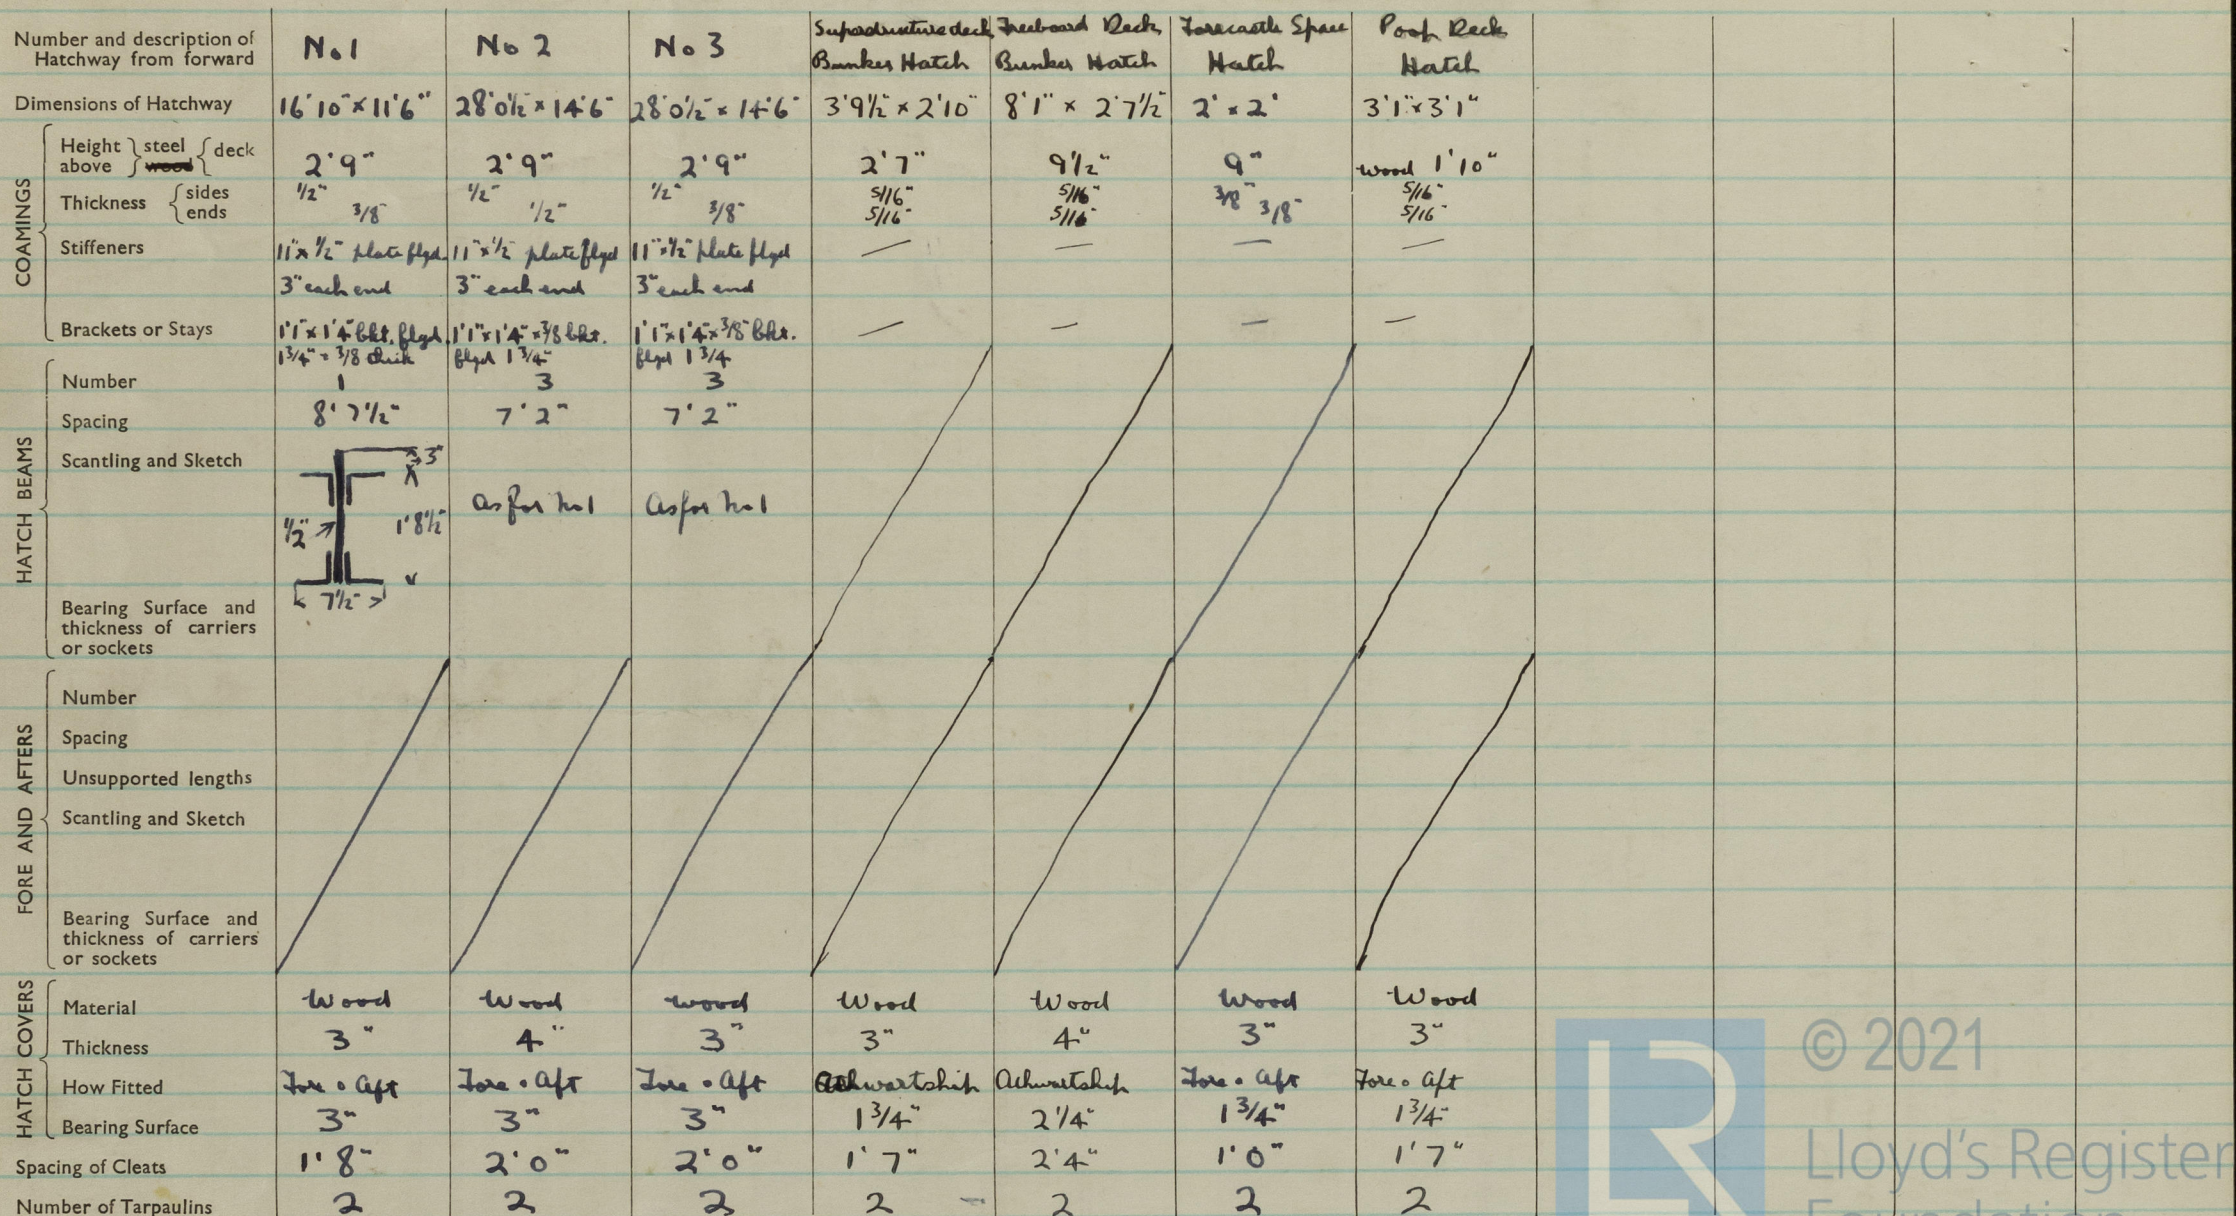 Number and description of Hatchway from forward No 1 No 2 No 3 Superstructure deck Bunker Hatch Freeboard Deck Bunker Hatch Forecastle Space Hatch Poop Deck Hatch
Dimensions of Hatchway 16'10" × 11'6" 28'0½" × 14'6" 28'0½" × 14'6" 3'9½" × 2'10" 8'1" × 2'7½" 2' × 2' 3'1" × 3'1"
COAMINGS
Height above steel wood deck 2'9" 2'9" 2'9" 2'7" 9½" 9" wood 1'10"
Thickness sides ½" ½" ½" 5/16" 5/16" 3/8" 5/16"
ends 3/8" ½" 3/8" 5/16" 5/16" 3/8" 5/16"
Stiffeners 11" × ½" plate flgd. 3" each end 11" × ½" plate flgd 3" each end 11" × ½" plate flgd 3" each end — — — —
Brackets or Stays 1'1" × 1'4" bkt. flgd. 1¾" × 3/8 thick 1'1" × 1'4" × 3/8 bkt. flgd 1¾" 1'1" × 1'4" × 3/8" bkt. flgd 1¾ — — — —
HATCH BEAMS
Number 1 3 3
Spacing 8'7½" 7'2" 7'2"
Scantling and Sketch 3" ½" 1'8½" 7½" As for No 1 As for No 1
Bearing Surface and thickness of carriers or sockets
FORE AND AFTERS
Number
Spacing
Unsupported lengths
Scantling and Sketch
Bearing Surface and thickness of carriers or sockets
HATCH COVERS
Material Wood Wood Wood Wood Wood Wood Wood
Thickness 3" 4" 3" 3" 4" 3" 3"
How Fitted Fore & Aft Fore & Aft Fore & Aft Athwartship Athwartship Fore & Aft Fore & Aft
Bearing Surface 3" 3" 3" 1¾" 2¼" 1¾" 1¾"
Spacing of Cleats 1'8" 2'0" 2'0" 1'7" 2'4" 1'0" 1'7"
Number of Tarpaulins 2 2 2 2 2 2 2
LR
© 2021
Lloyd's Register
Foundation